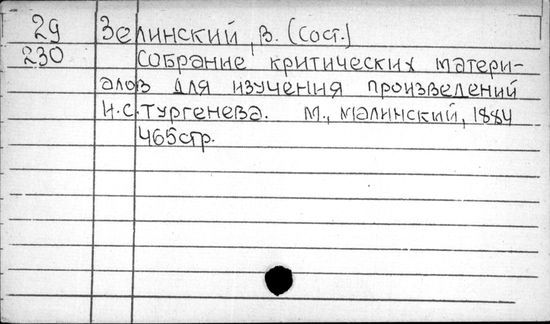 29 Зелинский, В. (Сост.)
230 Собрание критических матери-
алов для изучения произведений
И.С. Тургенева. М., Малинский, 1884
465стр.